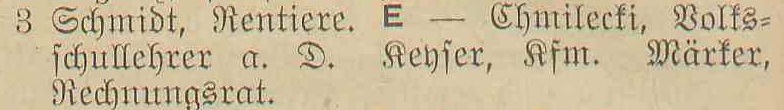 3 Schmidt, Rentiere. E — Chmilecki, Volks-
schullehrer a. D. Keyser, Kfm. Märker,
Rechnungsrat.